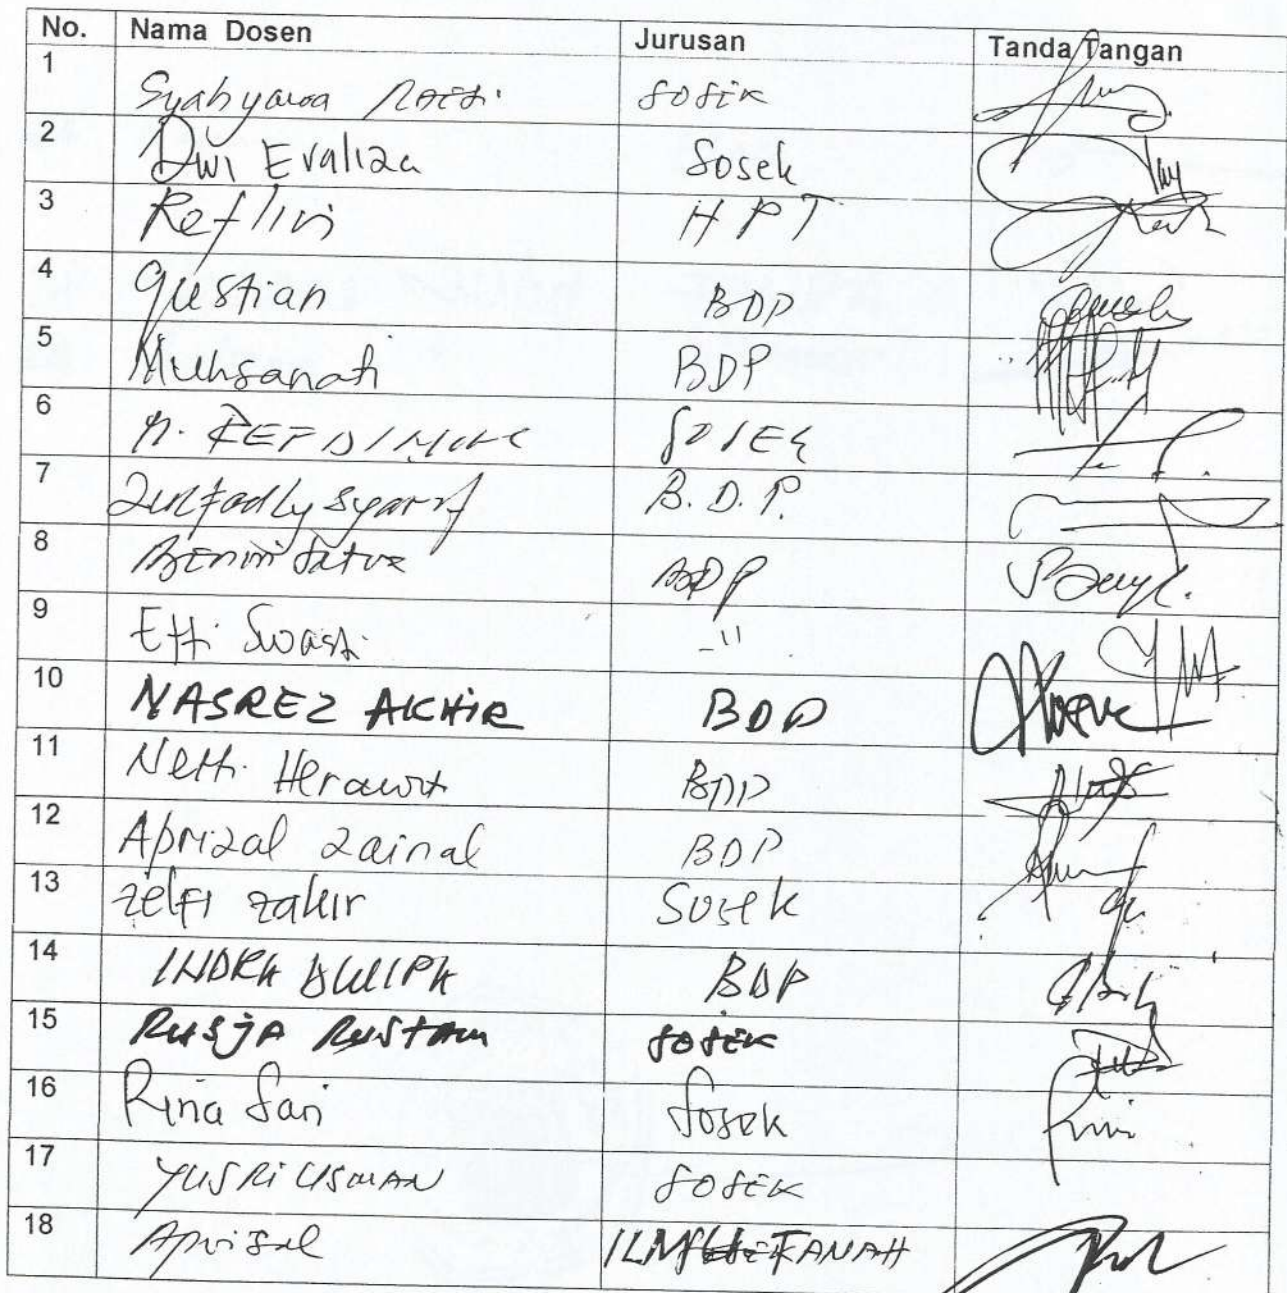 No. Nama Dosen Jurusan Tanda Tangan
1 Syahyana Raesi Sosek
2 Dwi Evaliza Sosek
3 Reflin HPT
4 Gustian BDP
5 Muhsanati BDP
6 Sosek
7 Zulfadly Syarif B.D.P.
8 Benni Satria BDP
9 Etti Swasti -"
10 NASREZ AKHIR BDP
11 Netti Herawati BDP
12 Aprizal Zainal BDP
13 Zelfi Zakir Sosek
14 INDRA DWIPA BDP
15 RUSJA RUSTAM SOSEK
16 Rina Sari Sosek
17 YUSRI USMAN SOSEK
18 Aprisal ILMU TANAH